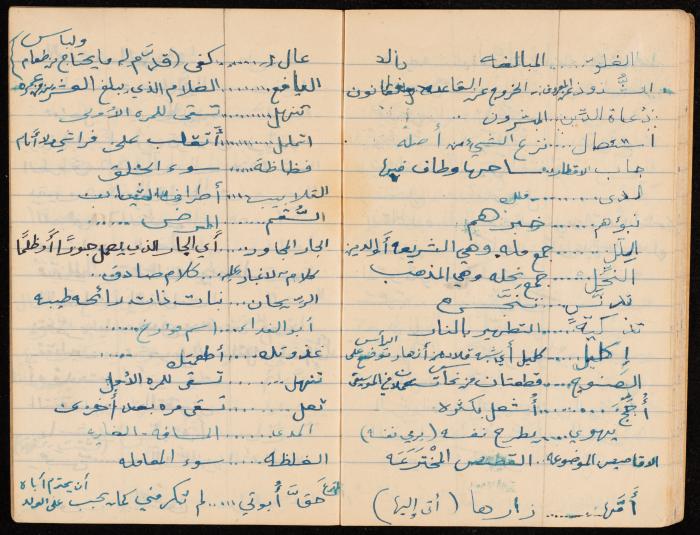 الغلو.... المبالغه
الشذوذ عن المعروف.. الخروج عن القاعده والقانون
دعاة الدين... المبشرون
استئصال... نزع الشيء من أصله
جاب الاقطار.. ساحبها وطاف فيها
لدى.....
نبؤهم... خبرهم
الملل..... جمع مله وهي الشريعه أو الدين
النحل.... جمع نحله وهي المذهب
تدنس.... تنجس
تذكية.... التطهير بالنار
إكليل.... كليل أي شبه قلاده من أزهار توضع على الرأس
الصنوج.... قطعتان من نحاس تستعملان في الموسيقى
أجج........ أشعل بكثره
يهوي.... يطرح نفسه (يرمي نفسه)
الاقاصيص الموضوعه.. القصص المخترعه
أمّها...... زارها (أتى إليها)
عال...... كفى (قدّم له ما يحتاج من طعام ولباس)
اليافع...... الغلام الذي يبلغ العشرين من عمره
تنهل........ تسقى للمره الأولى
اتململ...... أتقلب على فراشي ولا أنام
فظاظة..... سوء الخلق
التلابيب.... أطراف الثياب
السُّقم...... المرض.....
الجار المجاور.... أي الجار الذي يعمل جوراً أو ظلماً
كلام لا غبار عليه... كلام صادق..
الريحان.... نبات ذات رائحه طيبه
أبو الفداء... اسم مؤرخ.....
غذوتك.... أطعمتك.....
تنهل...... تسقى للمره الأولى
تعل...... تسقى مره بعد أخرى
المدى.... المسافه.. الغايه
الغلظه..... سوء المعامله
حقَّ أُبوتي..... لم تكرمني كما يجب على الولد أن يحترم أباه